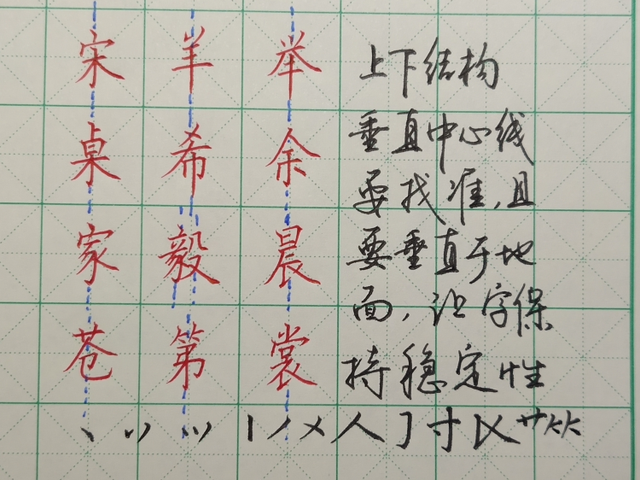 宋 羊 举 上下结构
桌 希 余 垂直中心线
要找准,且
家 毅 晨 要垂直于地
面,让字保
苍 第 裳 持稳定性
人 寸